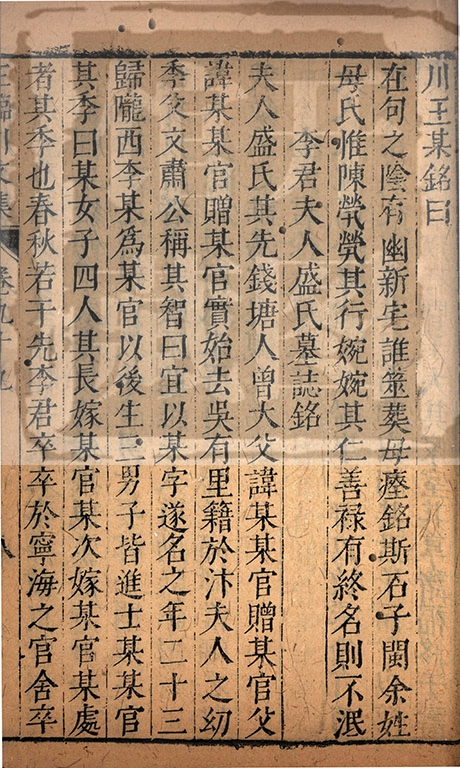 川王某銘曰
在句之陰有幽新宅誰筮葬母瘞銘斯石子閩余姓
母氏惟陳煢煢其行婉婉其仁善祿有終名則不泯
李君夫人盛氏墓誌銘
夫人盛氏其先錢塘人曾大父諱某某官贈某官父
諱某某官贈某官實始去吳有里籍於汴夫人之幼
季父文肅公稱其智曰宜以某字遂名之年二十三
歸隴西李某為某官以後生三男子皆進士某某官
其季曰某女子四人其長嫁某官某次嫁某官某處
者其季也春秋若干先李君卒卒於寧海之官舍卒
王臨川文集 卷九十九 八